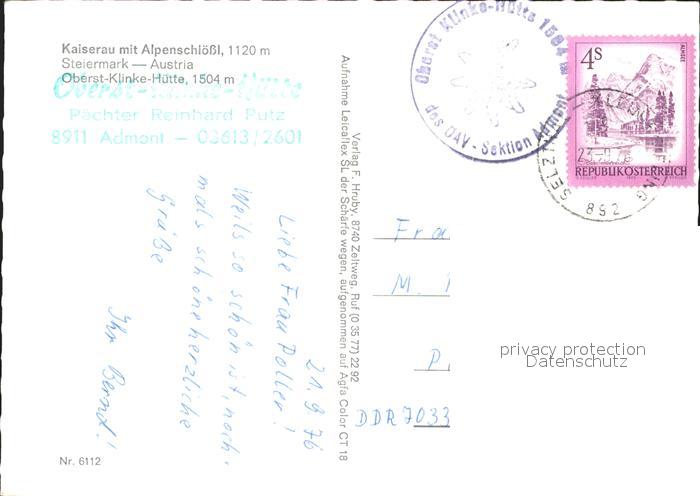 Kaiserau mit Alpenschlößl, 1120 m
Steiermark — Austria
Oberst-Klinke-Hütte, 1504 m
Oberst-Klinke-Hütte
Pächter Reinhard Putz
8911 Admont - 03613/2601
21. 9. 76
Liebe Frau Poller!
Weils so schön ist, noch-
mals schöne herzliche
Grüße
Ihr Bernd!
Nr. 6112
Verlag F. Hruby, 8740 Zeltweg, Ruf (0 35 77) 22 92
Aufnahme Leicaflex SL der Schärfe wegen, aufgenommen auf Agfa Color CT 18
Oberst Klinke-Hütte 1504 m
des ÖAV - Sektion Admont
4S
ALMSEE
REPUBLIK ÖSTERREICH
SELZTAL
892
Fra
M. i
P.
DDR 7033
privacy protection
Datenschutz